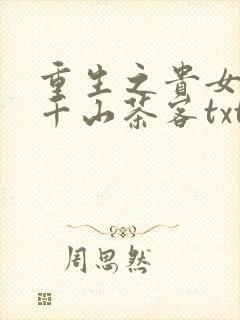 重生之貴女
千山茶客txt
周思然